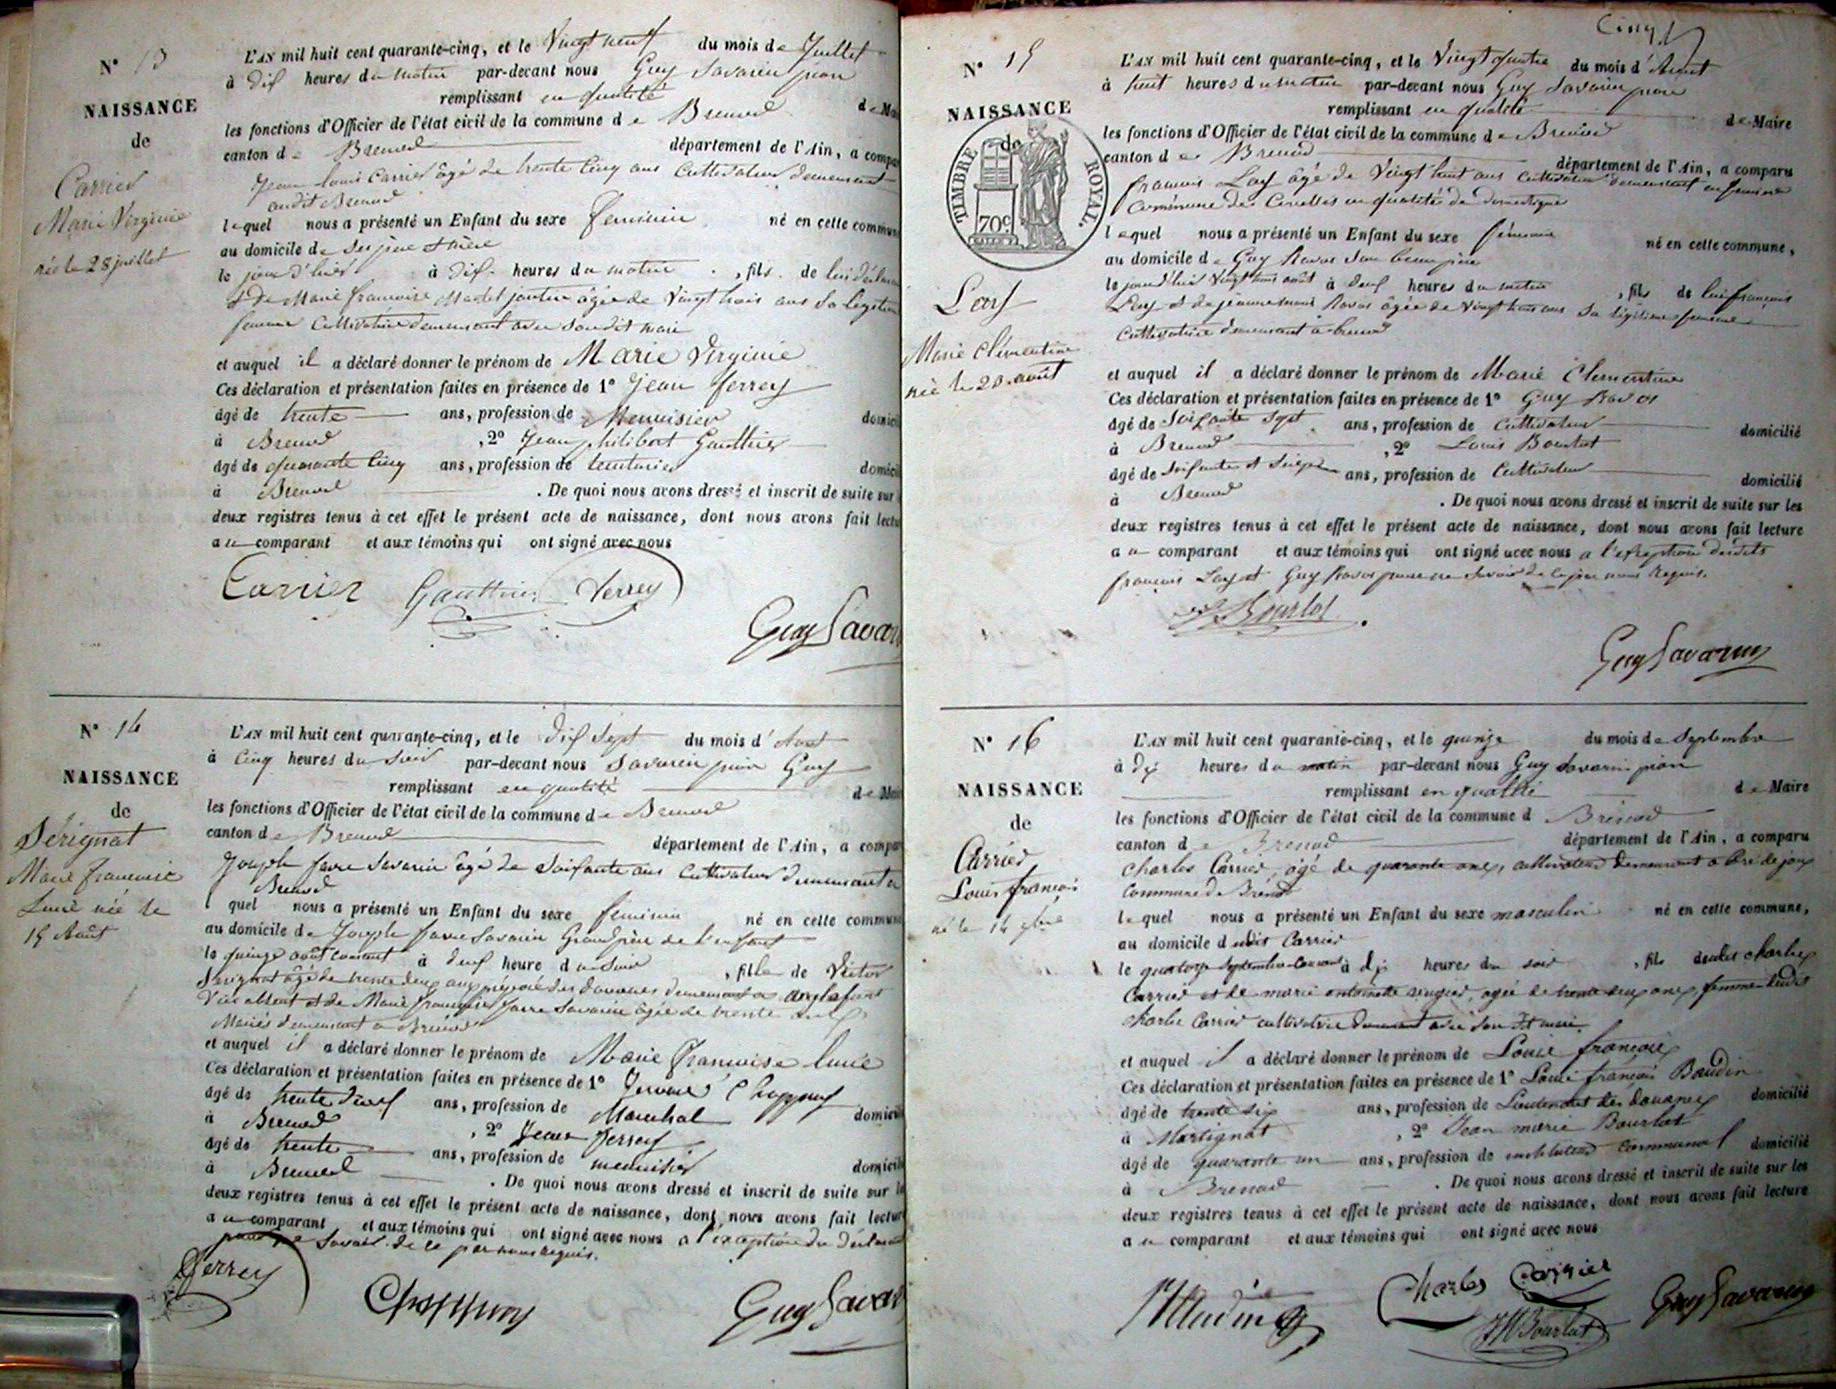 N° 13
NAISSANCE
de
Carrier
Marie Virginie
née le 28 juillet
L'AN mil huit cent quarante-cinq, et le Vingt neuf du mois de Juillet
à dix heures du matin par-devant nous Guy Savarin
remplissant en qualité de
les fonctions d'Officier de l'état civil de la commune de Brenod
canton de Brenod département de l'Ain, a
Jean Louis Carrier âgé de trente cinq ans Cultivateur demeurant
audit Brenod
lequel nous a présenté un Enfant du sexe feminin né en cette
au domicile de ses père et mère
le jour d'hier à dix heures du matin, fils de lui
et de Marie francoise âgée de Vingt trois ans Sa
femme Cultivatrice demeurant avec son dit mari
et auquel il a déclaré donner le prénom de Marie Virginie
Ces déclaration et présentation faites en présence de 1° Jean ferrey
âgé de trente ans, profession de Menuisier
à Brenod, 2° Jean philibert Gauthier
âgé de quarante Cinq ans, profession de
à Brenod. De quoi nous avons dressé et inscrit de suite sur
deux registres tenus à cet effet le présent acte de naissance, dont nous avons fait
au comparant et aux témoins qui ont signé avec nous
Carrier Gauthier ferrey
Guy
N° 14
NAISSANCE
de
Sérignat
Marie francoise
Lucie née le
15 Août
L'AN mil huit cent quarante-cinq, et le dix Sept du mois d'Aout
à Cinq heures du Soir par-devant nous Savarin Guy
remplissant en qualité de
les fonctions d'Officier de l'état civil de la commune de Brenod
canton de Brenod département de l'Ain, a
Joseph favre Savarin âgé de Soixante ans Cultivateur demeurant a
Brenod
lequel nous a présenté un Enfant du sexe feminin né en cette
au domicile de Joseph favre Savarin Grand père de l'enfant
le quinze août courant à deux heure du Soir, fille de Victor
Sérignat âgé de trente deux ans des douanes demeurant a anglefort
absent et de Marie francoise favre Savarin âgée de trente ans
Mariés demeurant a Brenod
et auquel il a déclaré donner le prénom de Marie francoise lucie
Ces déclaration et présentation faites en présence de 1° Chappuy
âgé de trente neuf ans, profession de Marechal
à Brenod, 2° Jean ferrey
âgé de trente ans, profession de menuisier
à Brenod. De quoi nous avons dressé et inscrit de suite sur
deux registres tenus à cet effet le présent acte de naissance, dont nous avons fait
au comparant et aux témoins qui ont signé avec nous a l'exception du
pour ne Savoir de ce par nous requis.
ferrey Chappuy Guy
Cinq
N° 15
NAISSANCE
de
TIMBRE ROYAL
70c
Lay
Marie Clémentine
née le 23 août
L'AN mil huit cent quarante-cinq, et le Vingt quatre du mois d'Aout
à huit heures du matin par-devant nous Guy Savarin
remplissant en qualité de Maire
les fonctions d'Officier de l'état civil de la commune de Brenod
canton de Brenod département de l'Ain, a comparu
francois Lay âgé de Vingt huit ans Cultivateur demeurant
Commune des en qualité de domestique
lequel nous a présenté un Enfant du sexe féminin né en cette commune,
au domicile de Guy Ravos Son beau père
le jour d'hier Vingt trois août à deux heures du matin, fils de lui françois
Lay et de jeanne Ravos âgée de Vingt trois ans Sa légitime femme
Cultivatrice demeurant a brenod
et auquel il a déclaré donner le prénom de Marie Clementine
Ces déclaration et présentation faites en présence de 1° Guy Ravos
âgé de Soixante Sept ans, profession de Cultivateur domicilié
à Brenod, 2° Louis Bourlot
âgé de Soixante et ans, profession de Cultivateur domicilié
à Brenod. De quoi nous avons dressé et inscrit de suite sur les
deux registres tenus à cet effet le présent acte de naissance, dont nous avons fait lecture
au comparant et aux témoins qui ont signé avec nous a l'exception desdits
francois Lay et Guy Ravos pour ne Savoir de ce par nous Requis.
Bourlot
Guy Savarin
N° 16
NAISSANCE
de
Carrier
Louis françois
né le 14 7bre
L'AN mil huit cent quarante-cinq, et le quinze du mois de Septembre
à dix heures du matin par-devant nous Guy Savarin
remplissant en qualité de Maire
les fonctions d'Officier de l'état civil de la commune d Brénod
canton de Brenod département de l'Ain, a comparu
Charles Carrier, âgé de quarante ans, cultivateur demeurant a
Commune de Brenod
lequel nous a présenté un Enfant du sexe masculin né en cette commune,
au domicile dudit Carrier
le quatorze Septembre Courant à dix heures du soir, fils dudit charles
Carrier et de marie antoinette, agée de trente deux ans, femme dudit
charles Carrier cultivatrice demeurant avec son dit mari
et auquel il a déclaré donner le prénom de Louis françois
Ces déclaration et présentation faites en présence de 1° Louis françois Baudin
âgé de trente six ans, profession de Lieutenant des douanes domicilié
à Martignat, 2° Jean marie Bourlot
âgé de quarante un ans, profession de instituteur communal domicilié
à Brenod. De quoi nous avons dressé et inscrit de suite sur les
deux registres tenus à cet effet le présent acte de naissance, dont nous avons fait lecture
au comparant et aux témoins qui ont signé avec nous
Charles Carrier
JM Bourlot
Guy Savarin